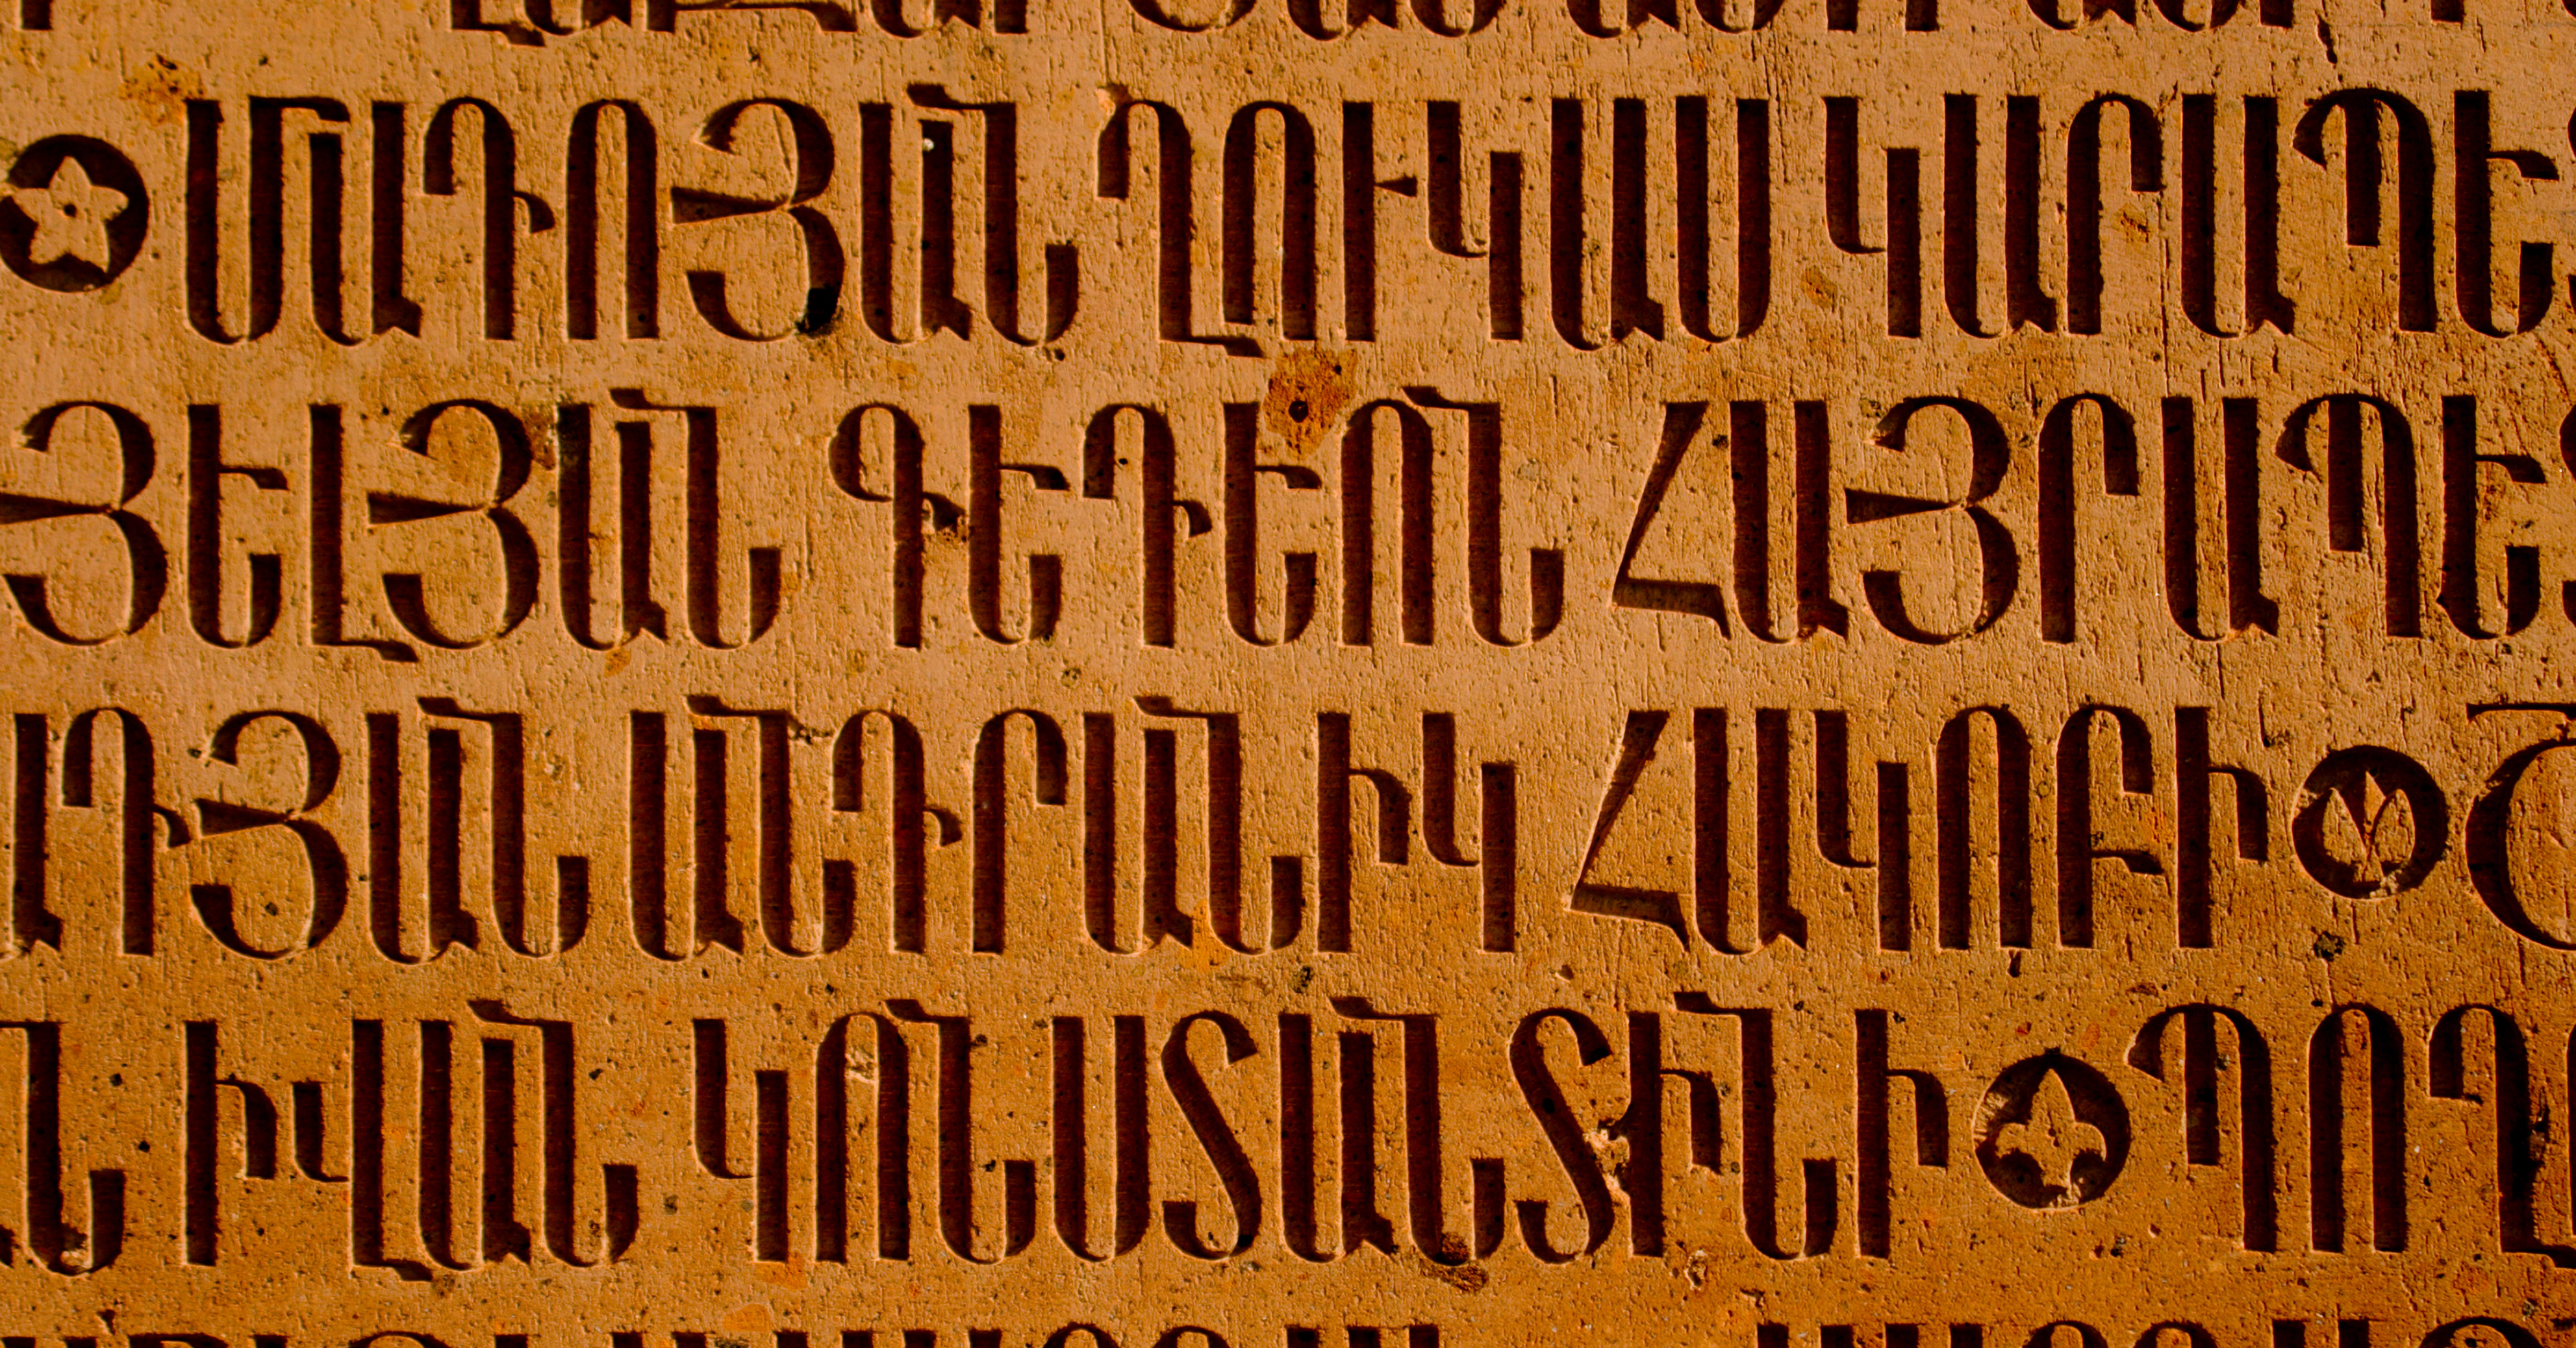 ՄԱԴՈՅԱՆ ՂՈՒԿԱՍ ԿԱՐԱՊԵ
ՅԵԼՅԱՆ ԳԵԴԵՈՆ ՀԱՅՐԱՊԵ
ԱԴՅԱՆ ԱՆԴՐԱՆԻԿ ՀԱԿՈԲԻ
ԱՆ ԻՎԱՆ ԿՈՆՍՏԱՆՏԻՆԻ ՊՈՂ